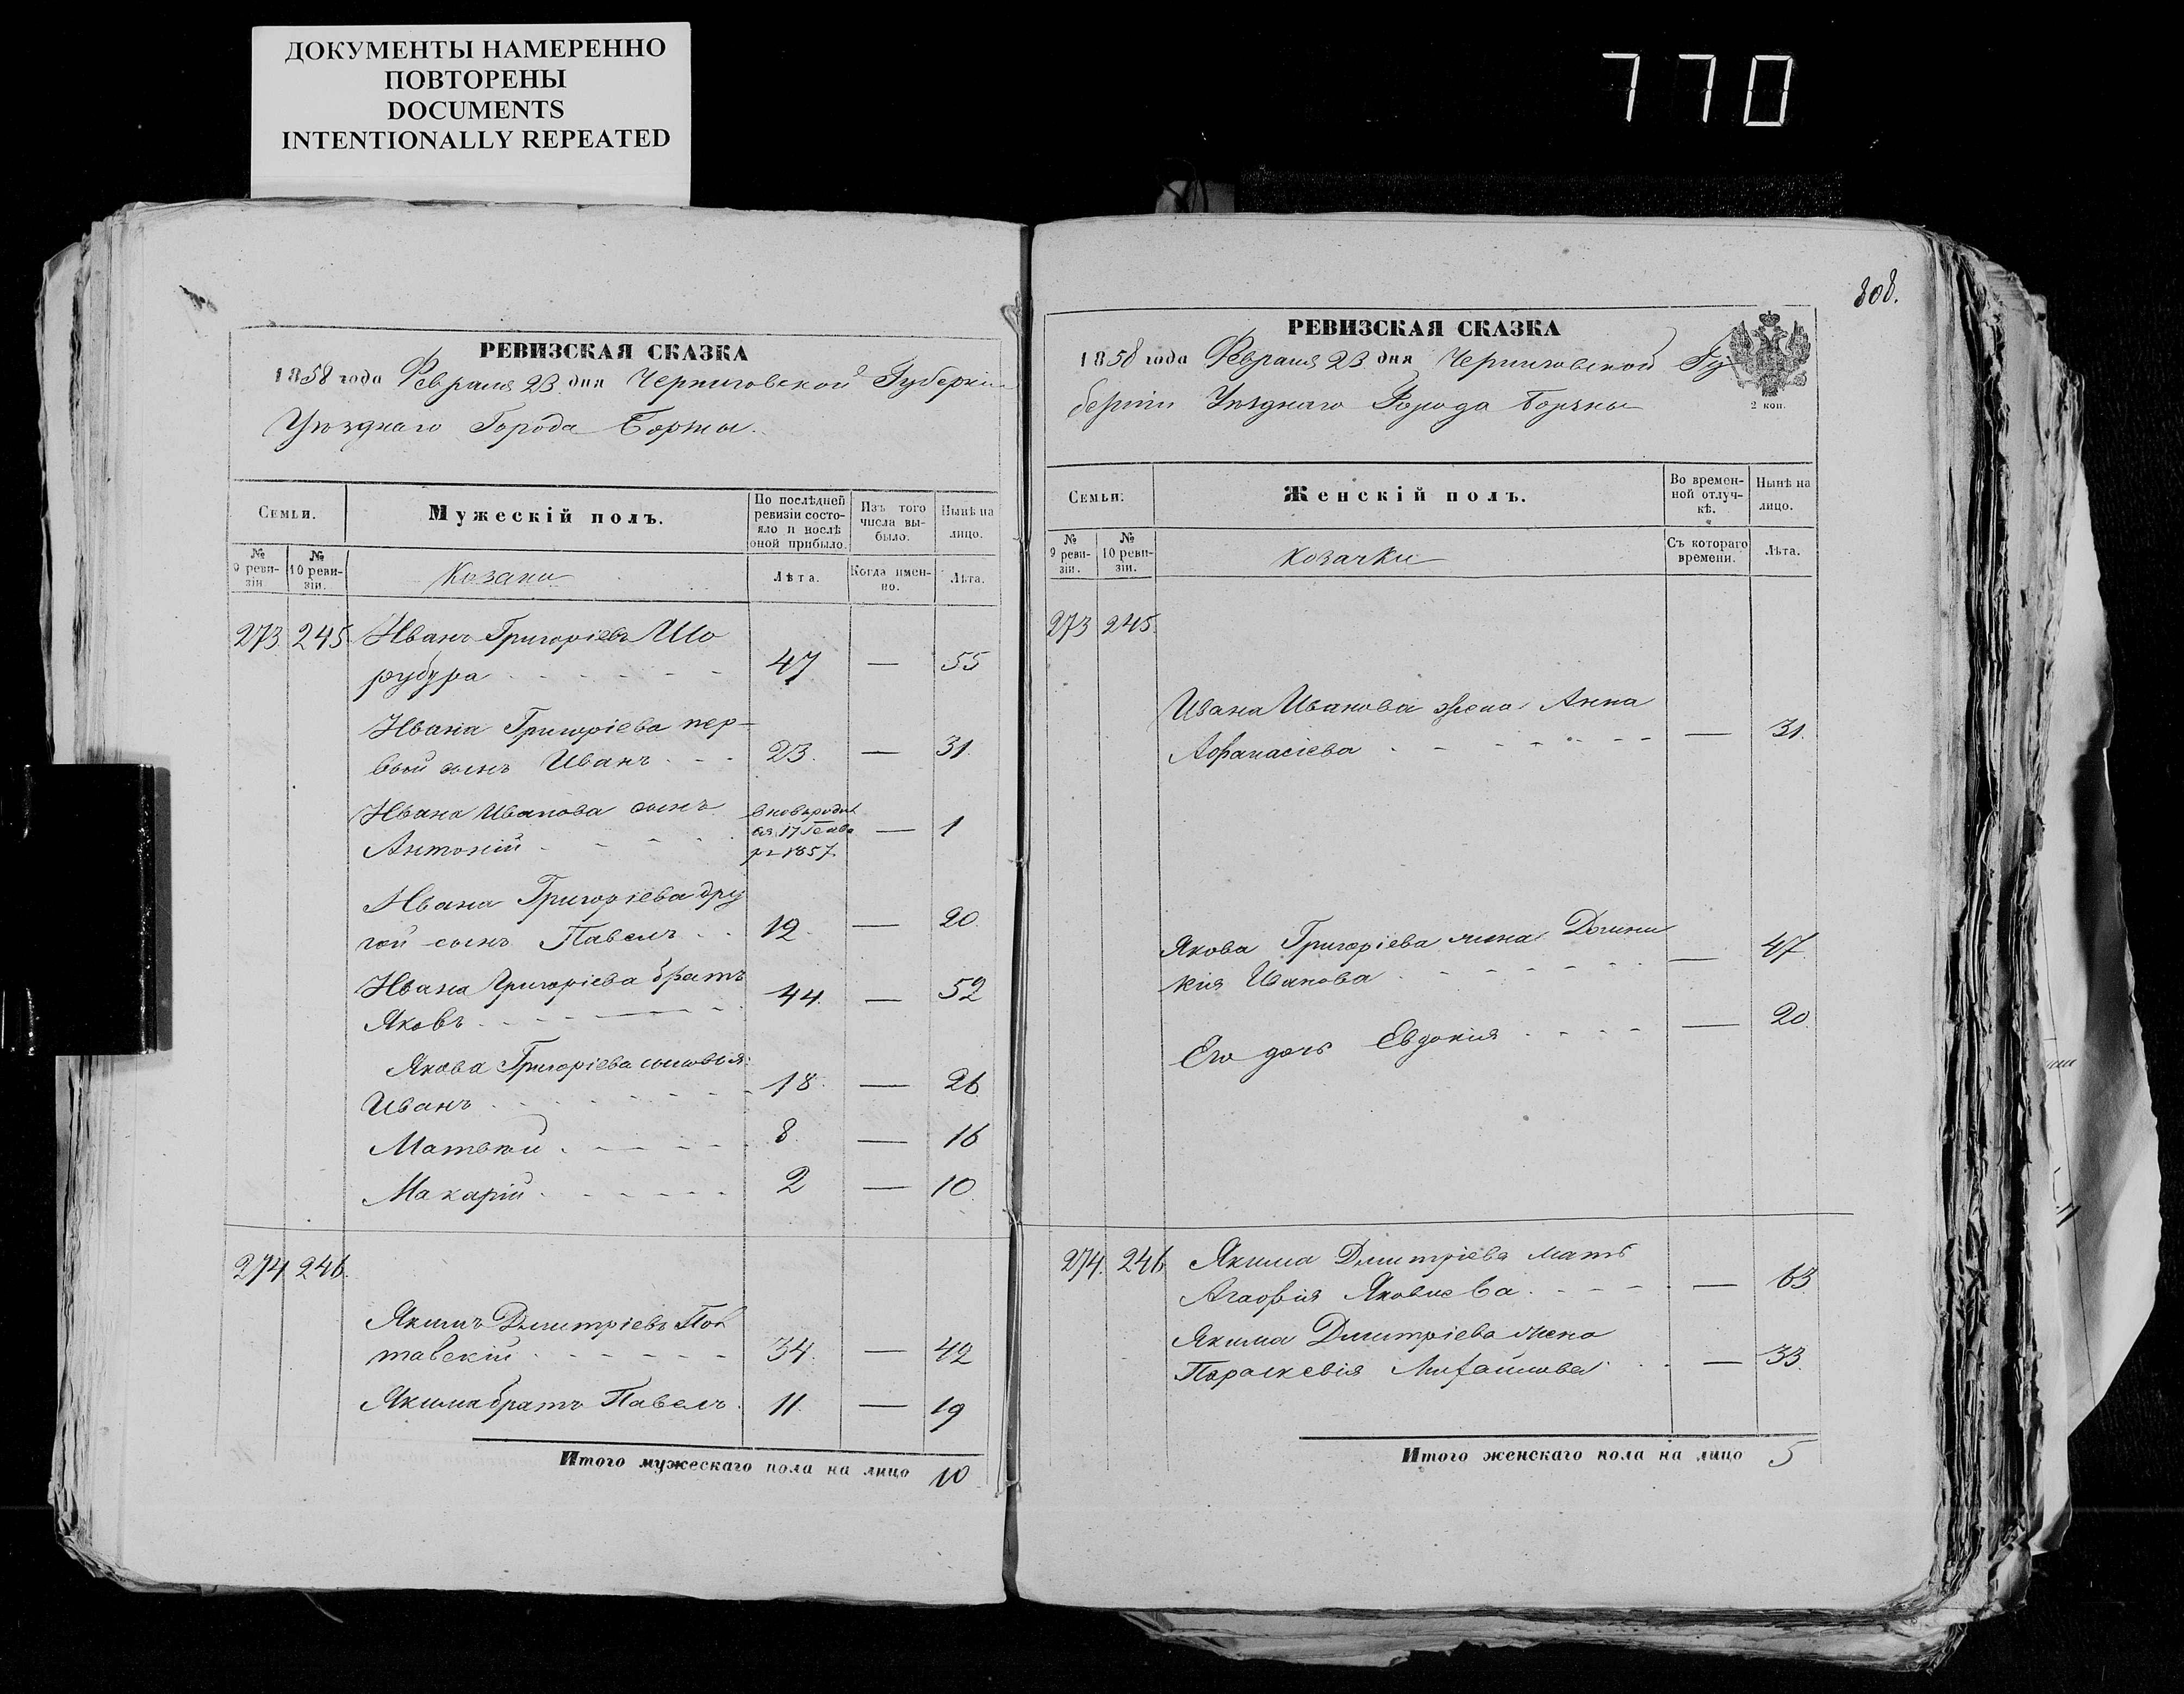 ДОКУМЕНТЫ НАМЕРЕННО
ПОВТОРЕНЫ
DOCUMENTS
INTENTIONALLY REPEATED
770
РЕВИЗСКАЯ СКАЗКА
1858 года Февраля 23 дня Черниговской Губерніи
Уѣзднаго Города Борзны.
Семьи.
Мужескій полъ.
По послѣдней
ревизіи состо-
яло и послѣ
оной прибыло.
Изъ того
числа вы-
было.
Нынѣ на
лицо.
№
9 реви-
зіи
№
10 реви-
зіи.
Козаки
Лѣта.
Когда имен-
но.
Лѣта.
273 245 Иванъ Григоріевъ Шо
рубура 47 — 55
Ивана Григоріева пер-
вый сынъ Иванъ 23. — 31.
Ивана Иванова сынъ
Антоній — 1
1857
Ивана Григоріева дру
гой сынъ Павелъ 12. — 20.
Ивана Григоріева братъ
Яковъ 44. — 52
Якова Григоріева сыновья:
Иванъ 18. — 26
Матвѣй 8. — 16
Макарій 2 — 10.
274 246.
Якимъ Дмитріевъ Пол
тавскій 34. — 42
Якима братъ Павелъ. 11. — 19
Итого мужескаго пола на лицо 10
808.
РЕВИЗСКАЯ СКАЗКА
1858 года Февраля 23 дня Черниговской Гу
берніи Уѣзднаго Города Борзны
2 коп.
Семьи.
Женскій полъ.
Во времен-
ной отлуч-
кѣ.
Нынѣ на
лицо.
№
9 реви-
зіи.
№
10 реви-
зіи.
Козачки
Съ котораго
времени.
Лѣта.
273 245.
Ивана Иванова жена Анна
Афанасіева — 31.
Якова Григоріева жена Домни
кія Иванова — 47.
Его дочь Евдокія — 20.
274. 246 Якима Дмитріева мать
Агафія Яковлева — 63.
Якима Дмитріева жена
Параскевія Михайлова — 33.
Итого женскаго пола на лицо 5